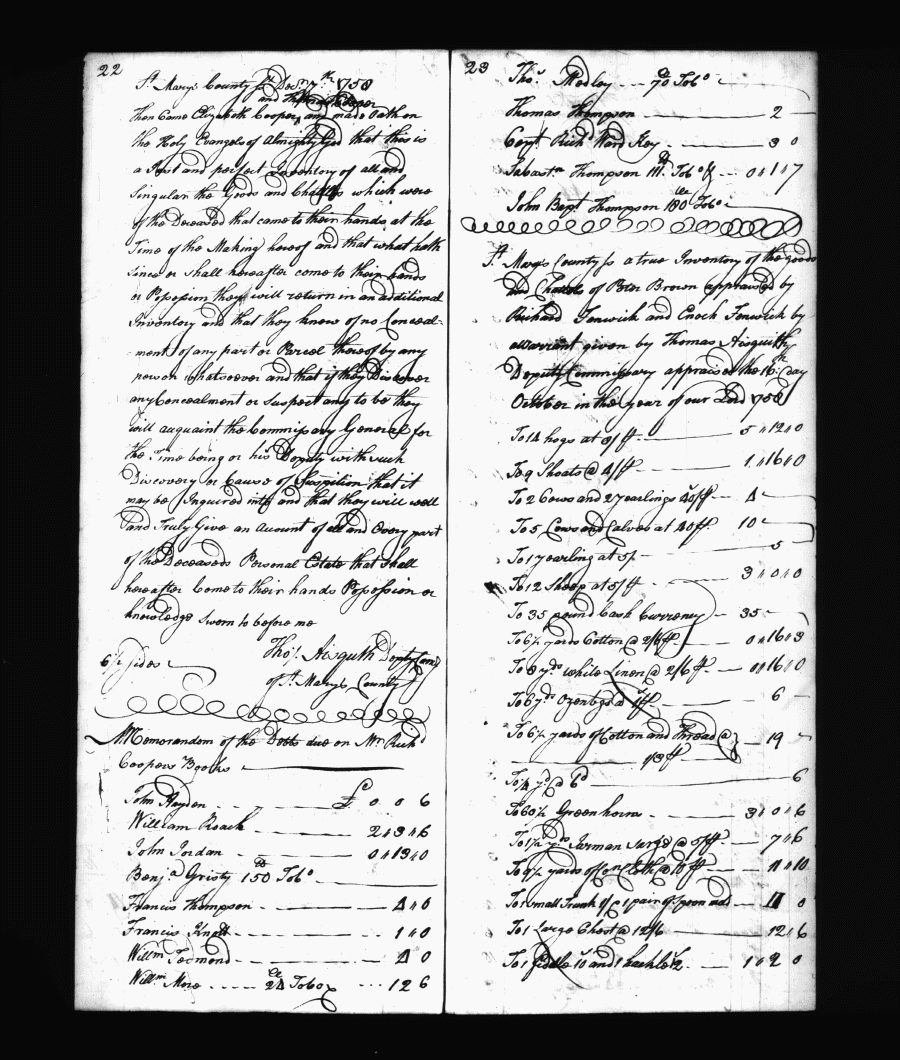 22
St Marys County ss Decr 7th 1758
Then Came Elizabeth Cooper and made Oath on
the Holy Evangels of Almighty God that this is
a Just and perfect Inventory of all and
Singular the Goods and Chattles which were
of the Deceased that came to their hands at the
Time of the Making hereof and that what hath
Since or shall hereafter come to their hands
or Possession they will return in an additional
Inventory and that they know of no Conceal-
ment of any part or Parcel thereof by any
person whatsoever and that if they Discover
any Concealment or suspect any to be they
will acquaint the Commissary General for
the Time being or his Deputy with such
Discovery or Cause of Suspition that it
may be Inquired into and that they will well
and Truly Give an Account of all and Every part
of the Deceaseds Personal Estate that shall
hereafter Come to their hands Possession or
knowledge Sworn to before me
Thos Aisquith Depty Comy
of St Marys County
6½ sides
Memorandom of the Debts due on Mr Richd
Coopers Books
John Hayden £ 0 0 6
William Roach 2 " 3 " 6
John Jordan 0 " 13 " 0
Benja Gristy 150 Tobo
Francis Thompson 4 " 0
Francis Knott 1 " 0
Willm 4 0
Willm More 24 Tobo 12 6
23
Thos Medley 70 Tobo
Thomas Thompson 2
Capt Richd Ward Key 3 0
Sabastn Thompson 111 Tobo & 0 " 1 " 7
John Bapt Thompson 180 Tobo
St Marys County ss a true Inventory of the goods
and Chattels of Peter Brown appraised by
Richard Fenwick and Enoch Fenwick by
a warrant given by Thomas Aisquith
Deputy Commissary appraised the 16th Day
October in the year of our Lord 1758
To 14 hogs at 8/ 5 " 12 " 0
To 9 Shoats @ 4/ 1 " 16 " 0
To 2 Cows and 2 yearlings 40/ 4
To 5 Cows and Calves at 40/ 10
To 1 yearling at 5/ 5
To 12 Sheep at 5/ 3 " 0 " 0
To 35 pound Cash Currency 35
To 6½ yards Cotton @ 2/6 0 " 16 " 3
To 8 yds white Linen @ 2/6 0 " 16 " 0
To 6 yds Ozenbgs @ 1/ 6
To 6½ yards of Cotton and Thread @ 19
1/3
To 14 yd @ 6d 6
To 60½ Greenhorn 3 " 0 " 6
To 1½ yds Jarman Surge @ 5/ 7 " 6
To yards of Cloth @ 10/
To 1 small Trunk 1 pair of Spoon 0
To 1 Large Chest @ 12/6 12 " 6
To 1 fiddle 10 and 1 hackle 12 1 " 2 0